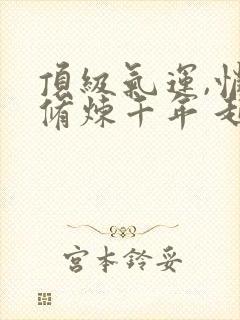 頂級氣運,悄
脩煉千年 起
宮本鈴妥